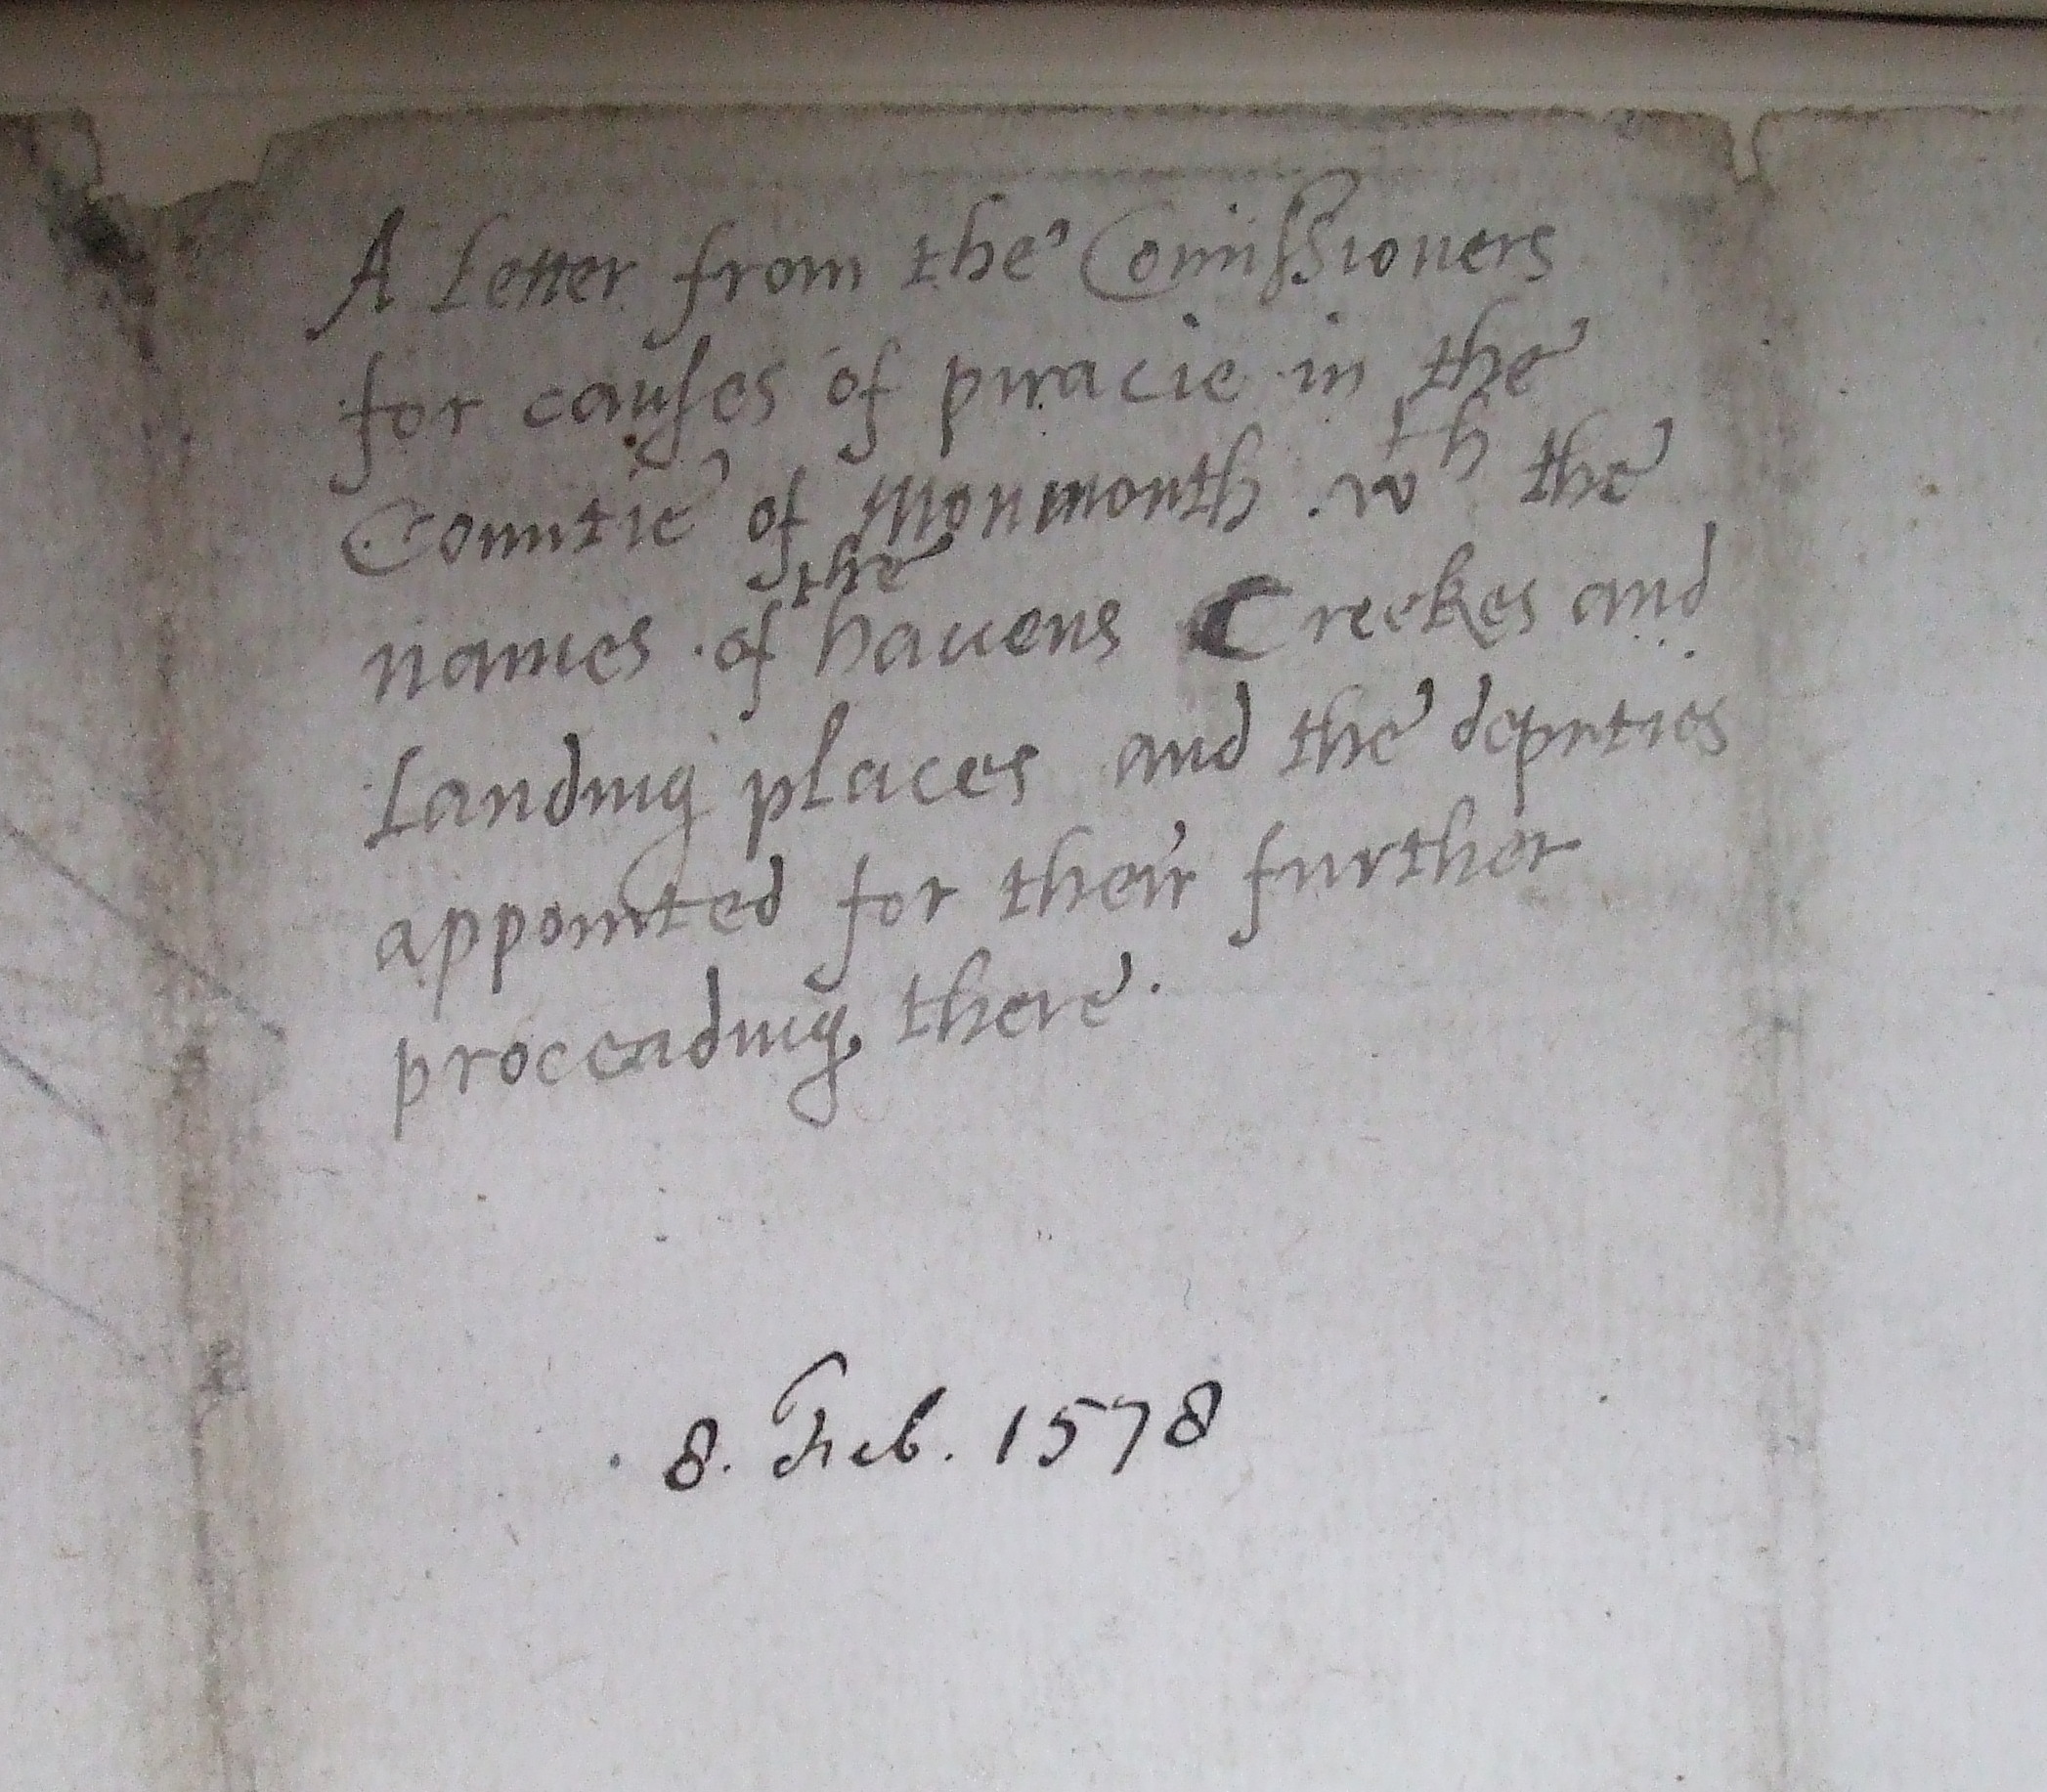 A Letter from the Comissioners
for causes of piracie in the
Countie of Monmouth wth the
names of the havens Creekes and
Landing places and the deputies
appointed for their further
proceading there.
8. Feb. 1578